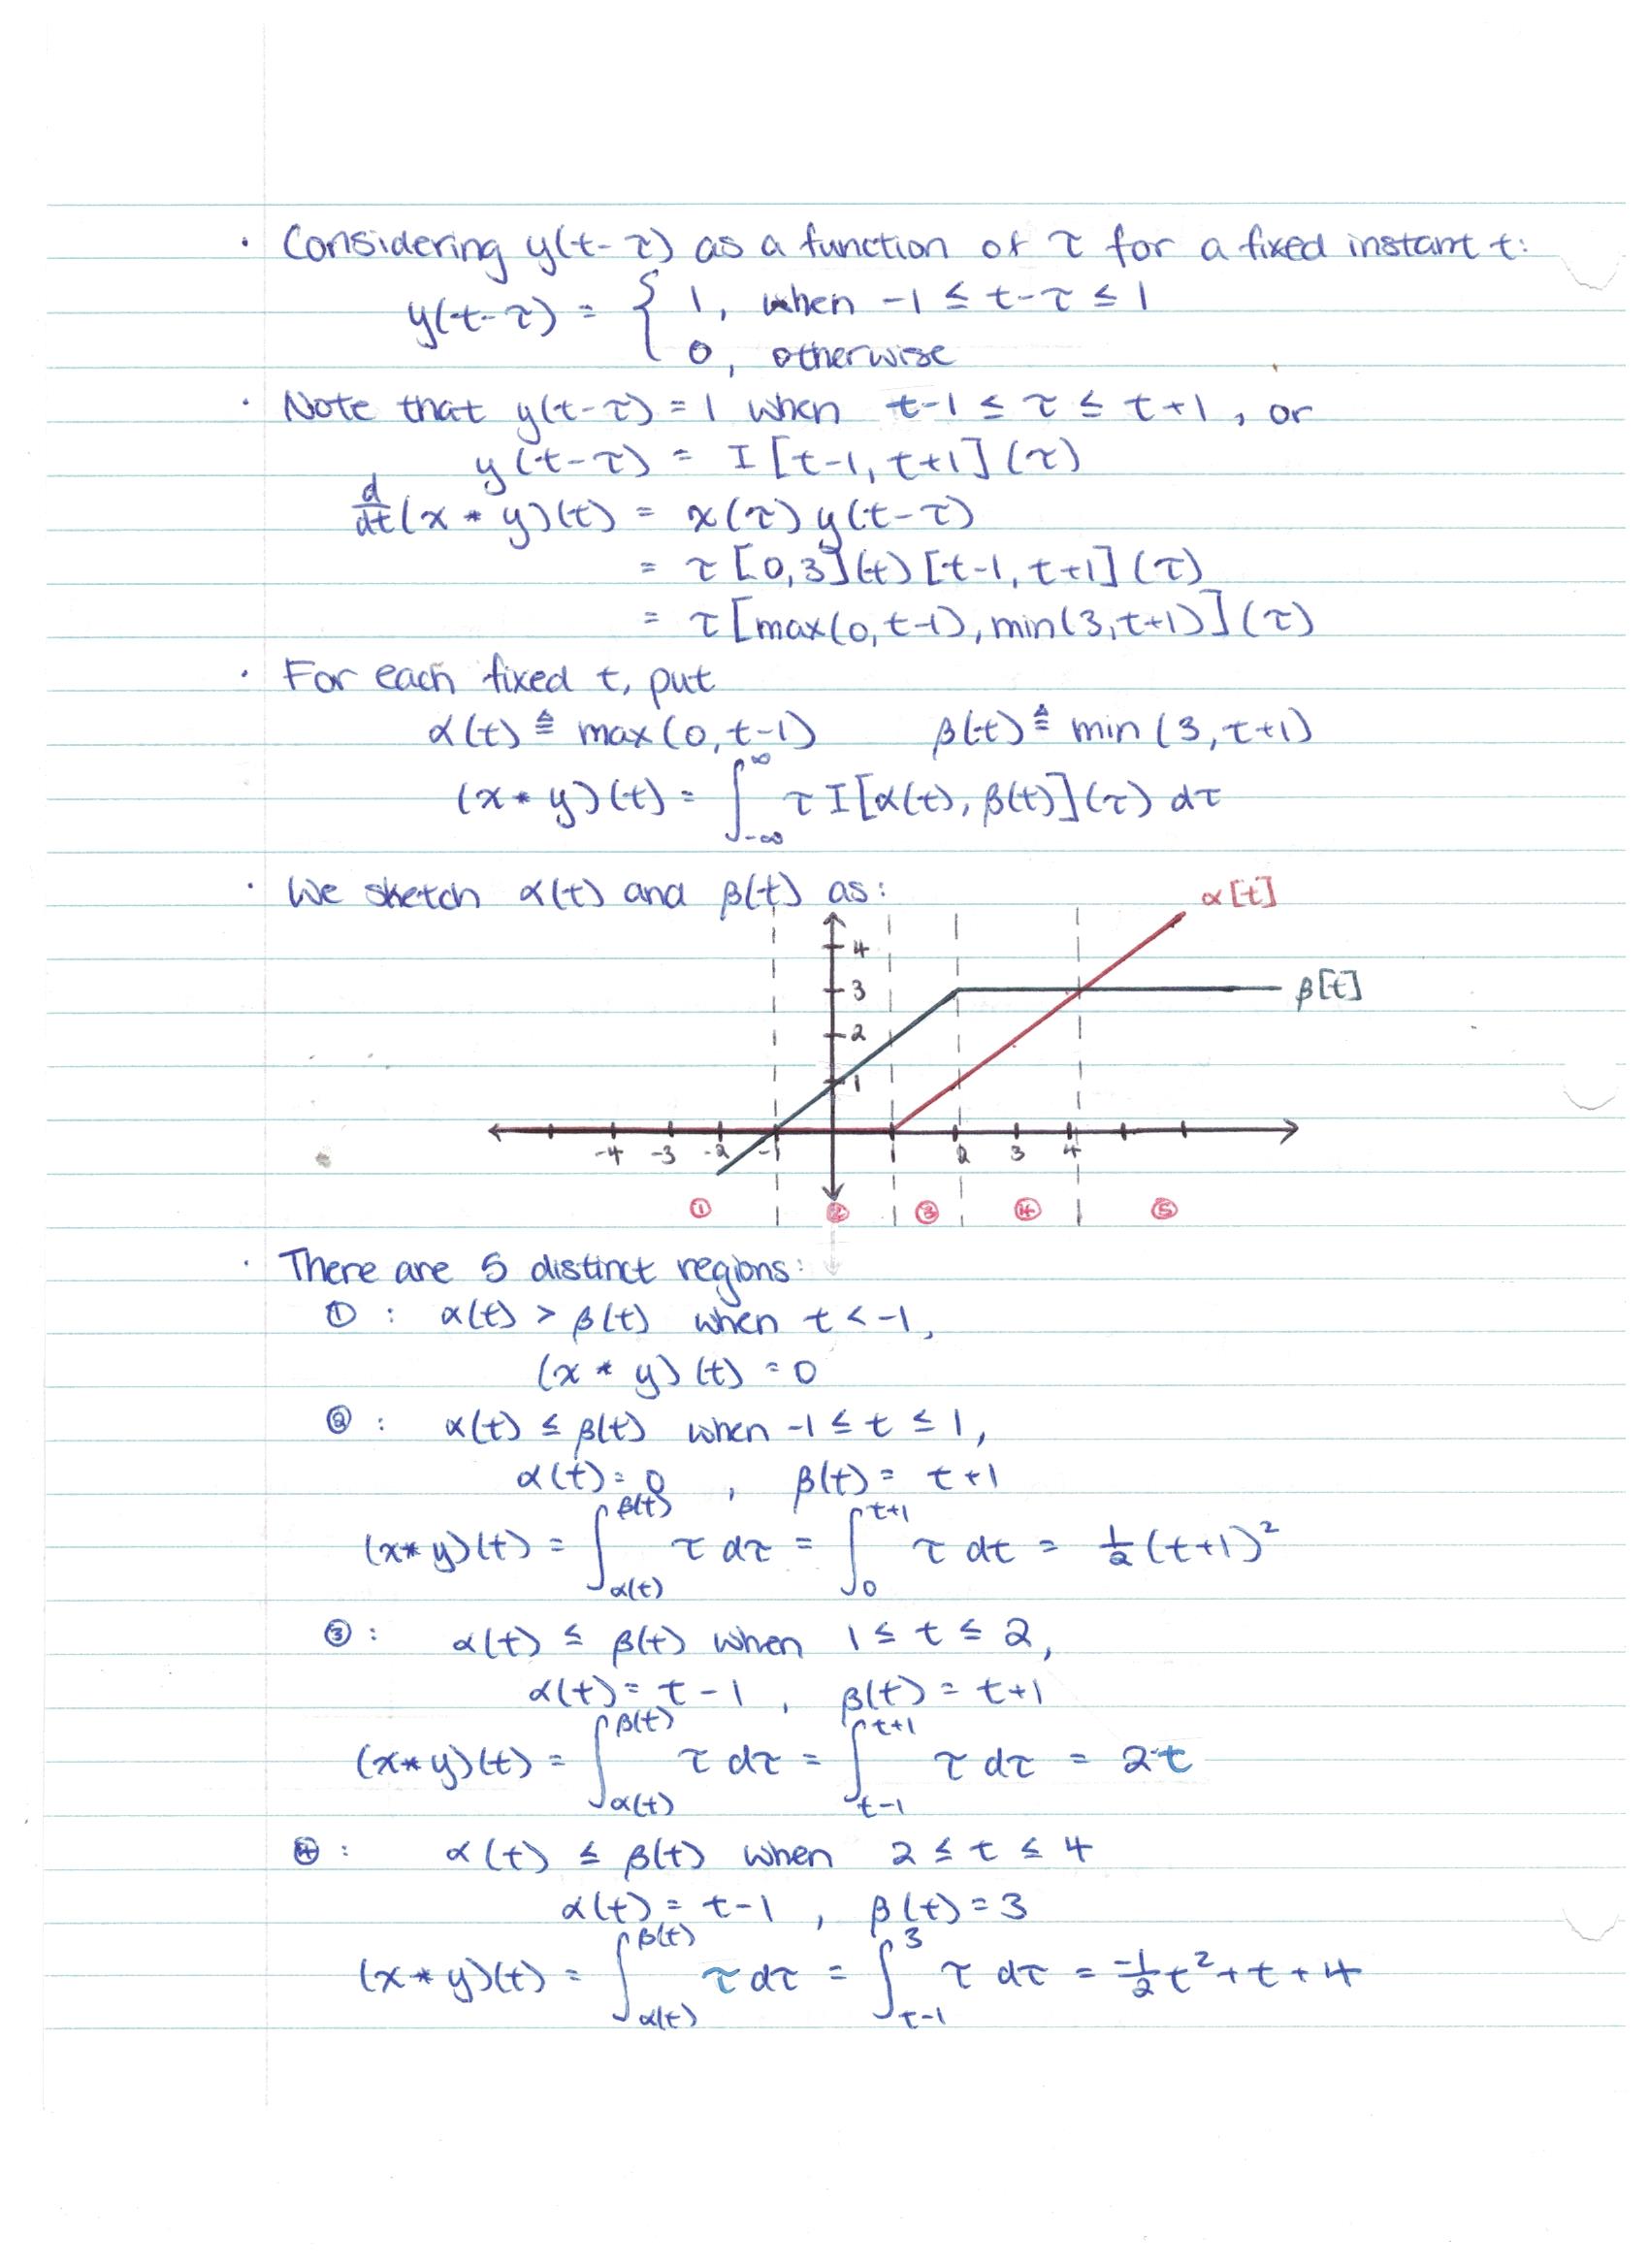 · Considering y(t-τ) as a function of τ for a fixed instant t:
y(t-τ) = { 1, when -1 ≤ t-τ ≤ 1
0, otherwise
· Note that y(t-τ) = 1 when t-1 ≤ τ ≤ t+1, or
y(t-τ) = I[t-1, t+1](τ)
d/dt(x * y)(t) = x(τ)y(t-τ)
= τ[0,3](t)[t-1, t+1](τ)
= τ[max(0,t-1), min(3,t+1)](τ)
· For each fixed t, put
α(t) ≜ max(0, t-1) β(t) ≜ min(3, t+1)
(x * y)(t) = ∫_{-∞}^{∞} τ I[α(t), β(t)](τ) dτ
· We sketch α(t) and β(t) as:
α[t]
4
3
β[t]
2
1
-4 -3 -2 -1 1 2 3 4
① ② ③ ④ ⑤
· There are 5 distinct regions:
① : α(t) > β(t) when t < -1,
(x * y)(t) = 0
② : α(t) ≤ β(t) when -1 ≤ t ≤ 1,
α(t) = 0 , β(t) = t+1
(x * y)(t) = ∫_{α(t)}^{β(t)} τ dτ = ∫_{0}^{t+1} τ dt = 1/2 (t+1)²
③ : α(t) ≤ β(t) when 1 ≤ t ≤ 2,
α(t) = t-1 , β(t) = t+1
(x * y)(t) = ∫_{α(t)}^{β(t)} τ dτ = ∫_{t-1}^{t+1} τ dτ = 2t
④ : α(t) ≤ β(t) when 2 ≤ t ≤ 4
α(t) = t-1 , β(t) = 3
(x * y)(t) = ∫_{α(t)}^{β(t)} τ dτ = ∫_{t-1}^{3} τ dτ = -1/2 t² + t + 4